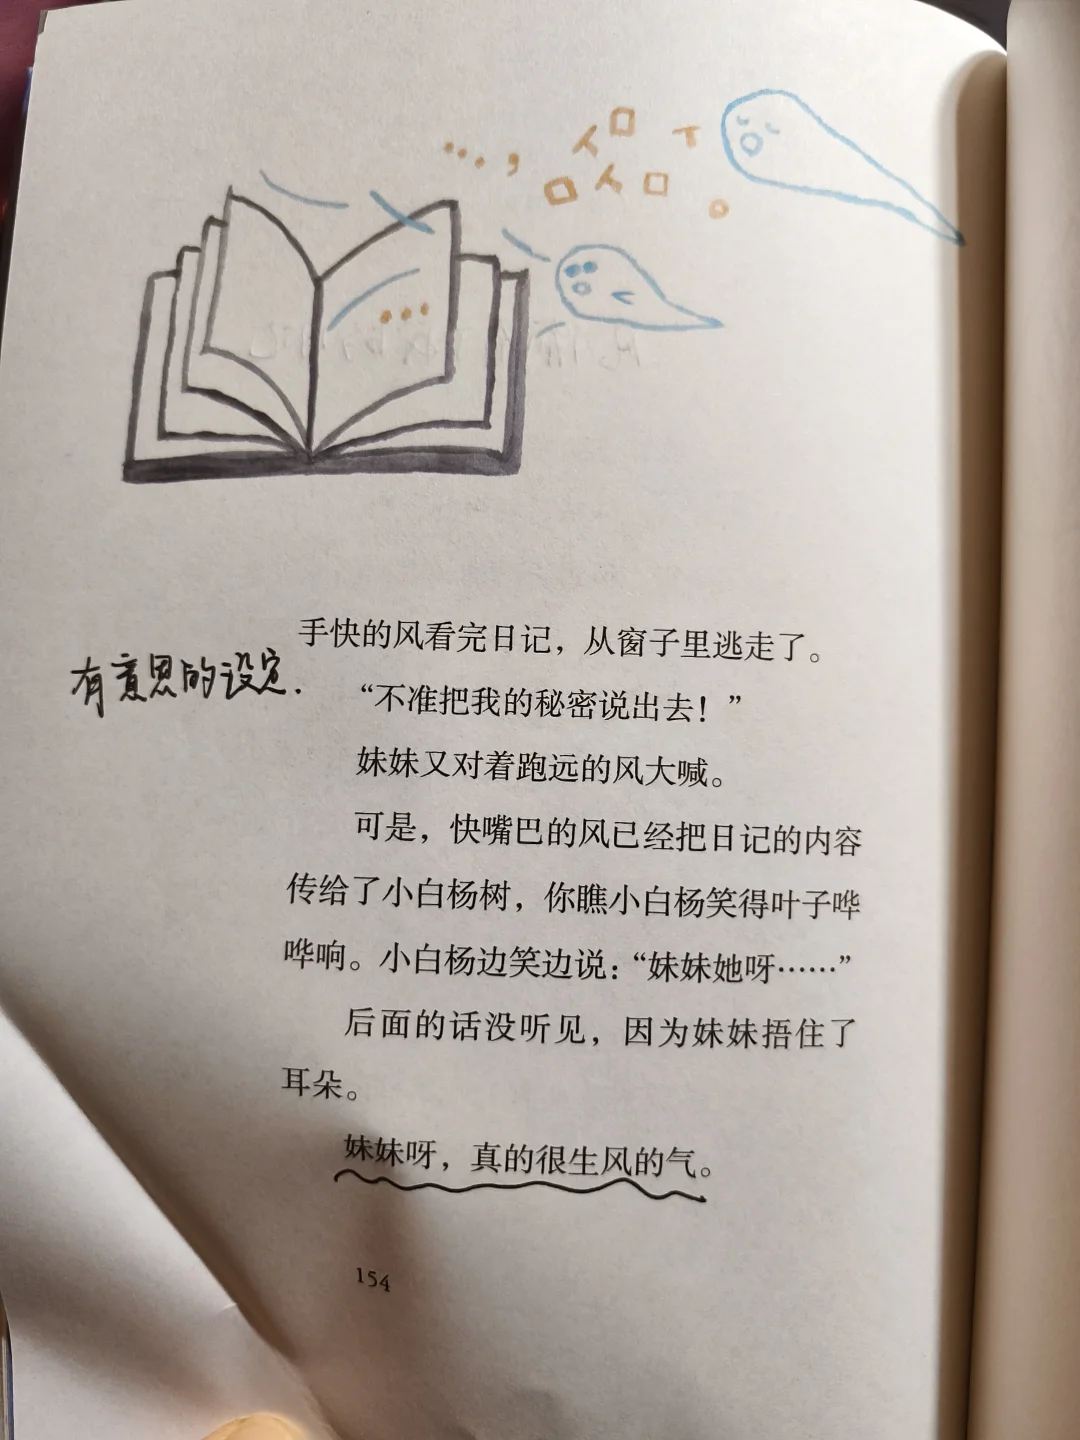 ……，人口 T
口人口 。
…
手快的风看完日记，从窗子里逃走了。
有意思的设定.
“不准把我的秘密说出去！”
妹妹又对着跑远的风大喊。
可是，快嘴巴的风已经把日记的内容
传给了小白杨树，你瞧小白杨笑得叶子哗
哗响。小白杨边笑边说：“妹妹她呀……”
后面的话没听见，因为妹妹捂住了
耳朵。
妹妹呀，真的很生风的气。
154